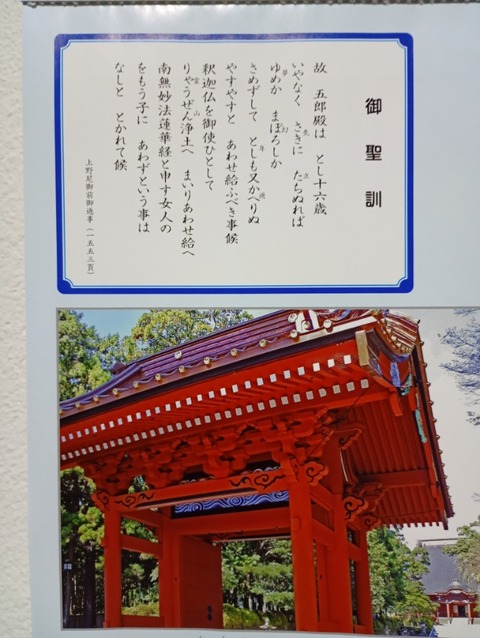 御聖訓
故　五郎殿は　とし十六歳
いやなく　さきに　たちぬれば
ゆめか　まぼろしか
さめずして　としも又かへりぬ
やすやすと　あわせ給ふべき事候
釈迦仏を御使ひとして
りやうぜん浄土へ　まいりあわせ給へ
南無妙法蓮華経と申す女人の
をもう子に　あわずという事は
なしと　とかれて候
上野尼御前御返事（一五五三頁）